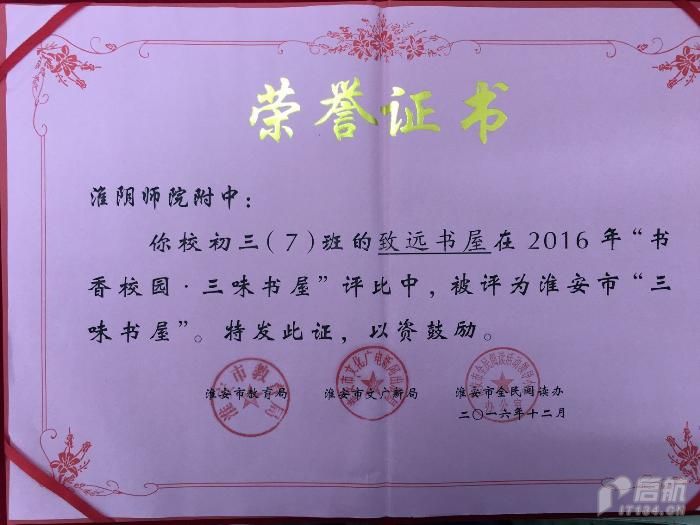 荣誉证书
淮阴师院附中：
你校初三(7)班的致远书屋在2016年“书
香校园·三味书屋”评比中，被评为淮安市“三
味书屋”。特发此证，以资鼓励。
淮安市教育局 淮安市文广新局 淮安市全民阅读办
二〇一六年十二月
启航
IT134.CN